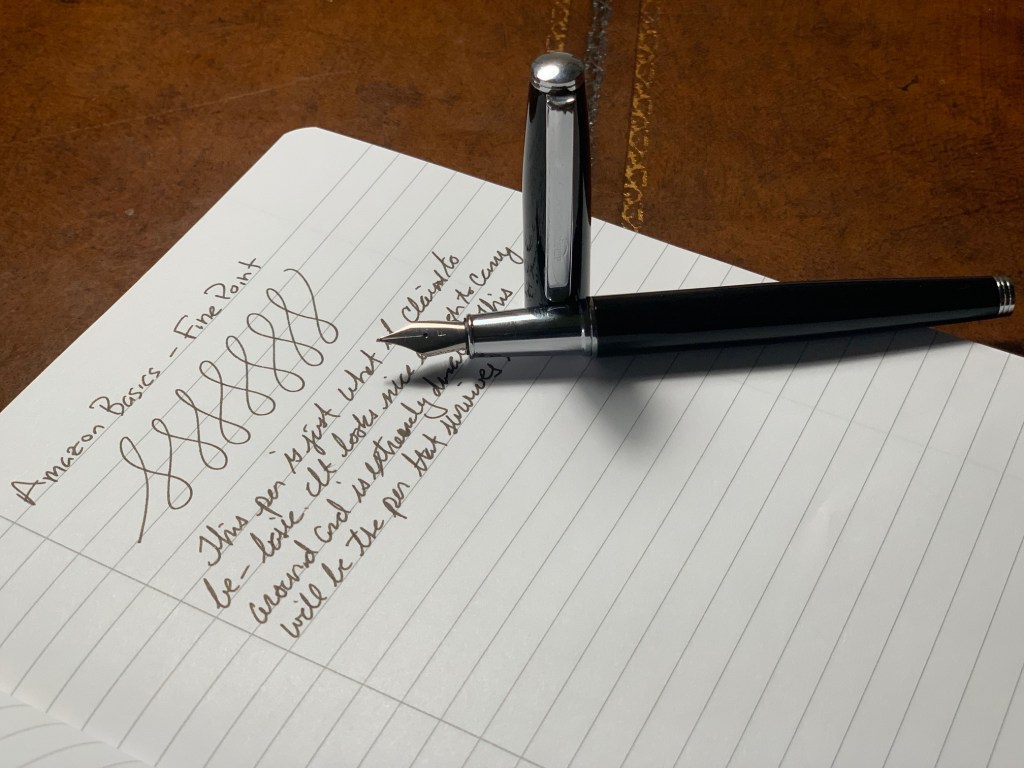 Amazon Basics - Fine Point
This pen is just what it claims to
be - basic. It looks nice to carry
around and is extremely this
will be the pen that survives